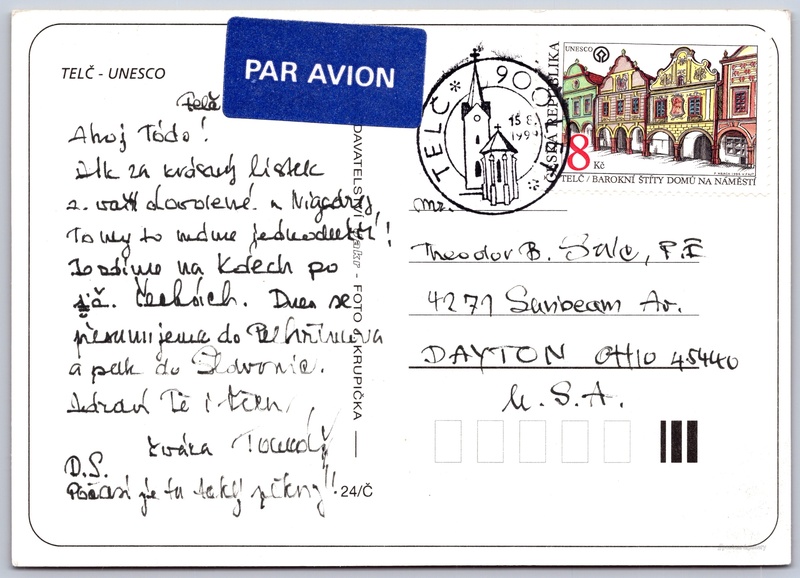 TELČ - UNESCO
PAR AVION
Telč
Ahoj Tódo!
Dík za krásný lístek
z vaší dovolené u Niagáry
To my to máme jednodušší!
Jezdíme na kolech po
již. Čechách. Dnes se
přesunujeme do Pelhřimova
a pak do Slavonic.
Zdraví Tě i
Zvára
D.S.
Počasí je tu taky pěkný!!
24/Č
DAVATELSTVÍ - FOTO J. KRUPIČKA
TELČ * 900 LET *
15 8. 1999
UNESCO
ČESKÁ REPUBLIKA
8 Kč
TELČ / BAROKNÍ ŠTÍTY DOMŮ NA NÁMĚSTÍ
Mr.
Theodor B. P.E
4271 Sunbeam Av.
DAYTON OHIO 45440
U.S.A.